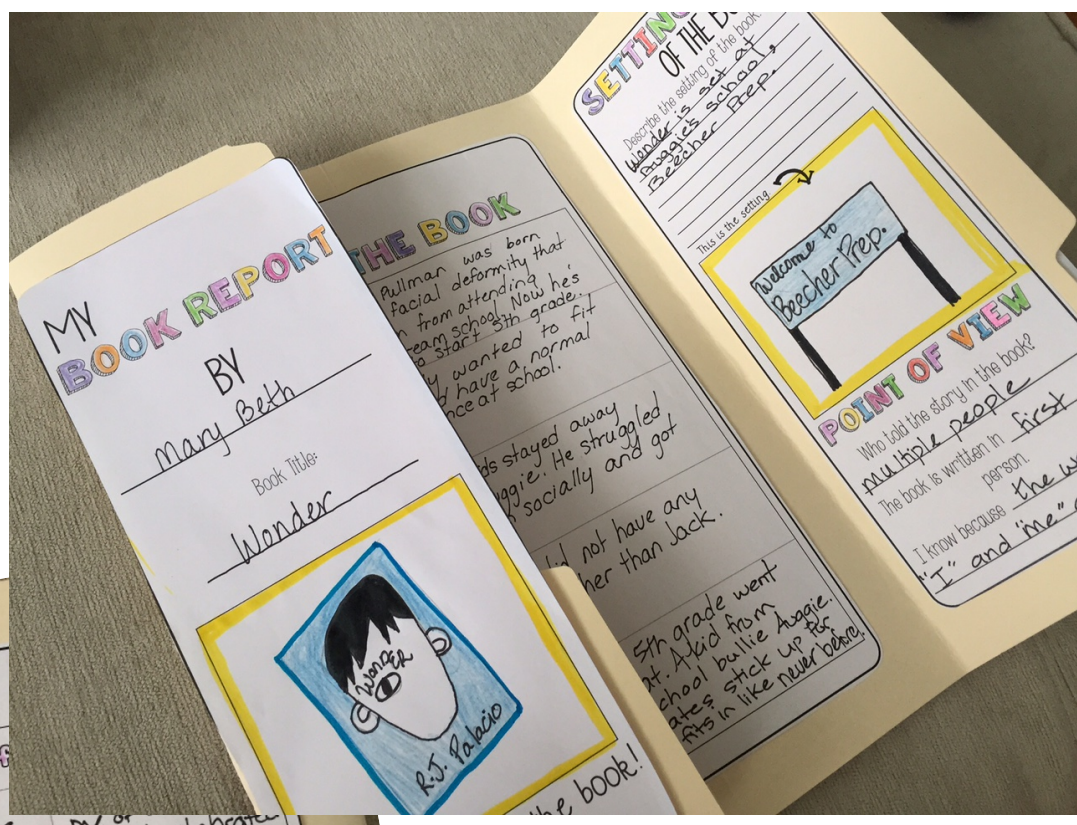 MY
BOOK REPORT
BY
Mary Beth
Book Title:
Wonder
WondER
R.J. Palacio
the book!
THE BOOK
Pullman was born
facial deformity that
from attending
school. Now he's
start 5th grade.
wanted to fit
have a normal
at school.
stayed away
He struggled
socially and got
not have any
than Jack.
5th grade went
A kid from
bullie Auggie.
stick up for
fits in like never before.
SETTING
OF THE
Describe the setting of the book.
Wonder is set at
Auggie's school,
Beecher Prep.
This is the setting
Welcome to
Beecher Prep.
POINT OF VIEW
Who told the story in the book?
multiple people
The book is written in first
person.
I know because the
"I" and "me"